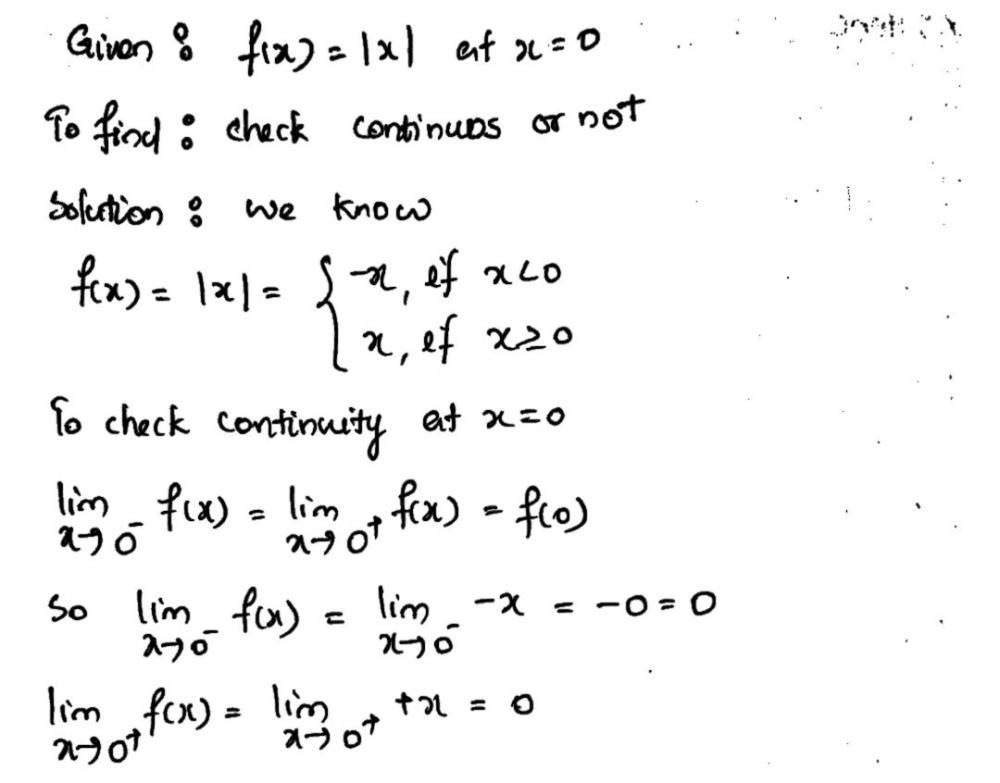 Given : f(x) = |x| at x = 0
To find : check continuos or not
Solution : we know
f(x) = |x| = { -x, if x<0
x, if x≥0
To check continuity at x=0
lim x→0⁻ f(x) = lim x→0⁺ f(x) = f(0)
So lim x→0⁻ f(x) = lim x→0⁻ -x = -0 = 0
lim x→0⁺ f(x) = lim x→0⁺ +x = 0